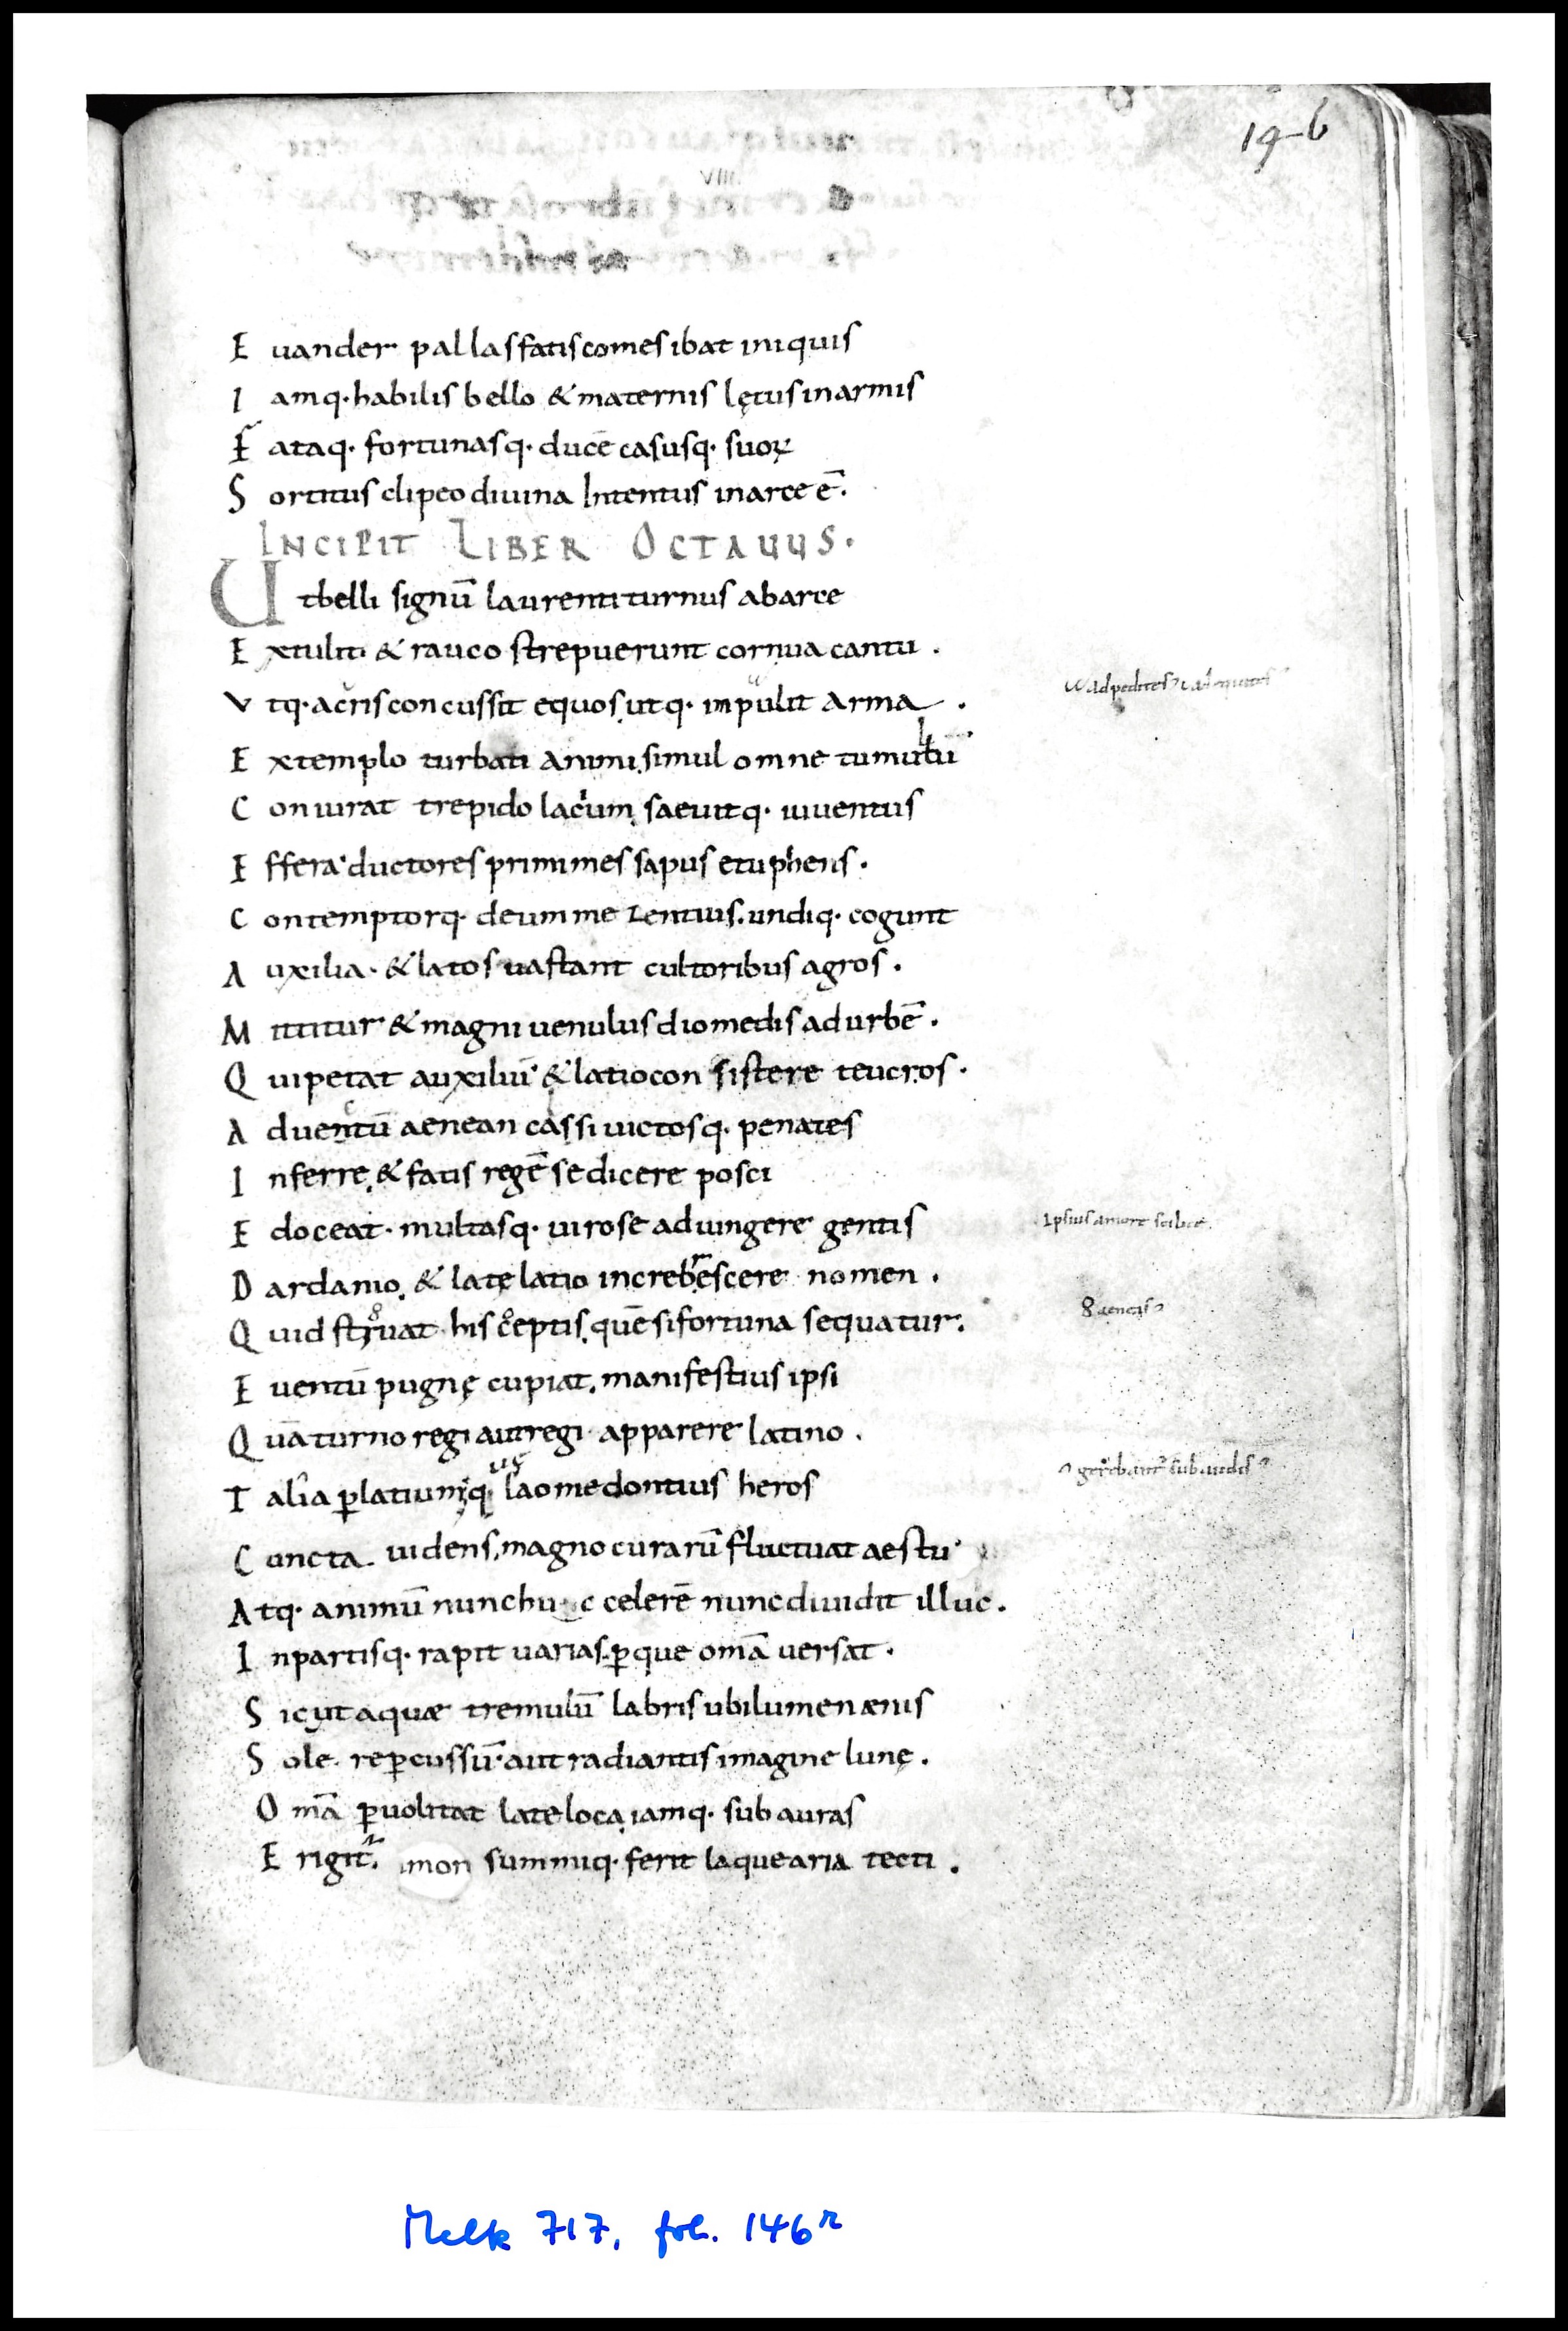 146
VIII
E uander pallas fatis comes ibat iniquis
I amq· habilis bello & maternis lętus in armis
F ataq· fortunasq· ducē casusq· suoꝝ
S ortitus clipeo diuina Intentus in arce ē.
INCIPIT LIBER OCTAUUS·
Ut belli signū laurenti turnus ab arce
E xtulit & rauco strepuerunt cornua cantu .
V tq· acris concussit equos utq· impulit arma .
W ad pedites ad equites
E xtemplo turbati animi. simul omne tumultū
C oniurat trepido lacium, saeuitq· iuuentus
E ffera· ductores primi messapus et uphens·
C ontemptorq· deum mezentius. undiq· cogunt
A uxilia· & latos uastant cultoribus agros.
M ittitur & magni uenulus diomedis ad urbē.
Q ui petat auxiliū & latio consistere teucros·
A duentū aenean cassi uictosq· penates
I nferre, & fatis regē se dicere posci
E doceat· multasq· uiro se adiungere gentis
ipsius amore
D ardanio, & late latio increbrescere nomen .
Q uid struat his cęptis, quē si fortuna sequatur.
E uentū pugnę cupiat, manifestius ipsi
Q uā turno regi aut regi apparere latino .
T alia ꝑ latiumq· us laomedontius heros
gerebantur subaudis
C uncta uidens, magno curarū fluctuat aestu·
A tq· animū nunc huc celerē nunc diuidit illuc.
I n partisq· rapit uarias. ꝑque omā uersat·
S icut aquæ tremulū labris ubi lumen ænis
S ole reꝑcussū· aut radiantis imagine lunę.
O mā ꝑuolitat late loca, iamq· sub auras
E rigitr, summiq· ferit laquearia tecti .
Melk 717, fol. 146r